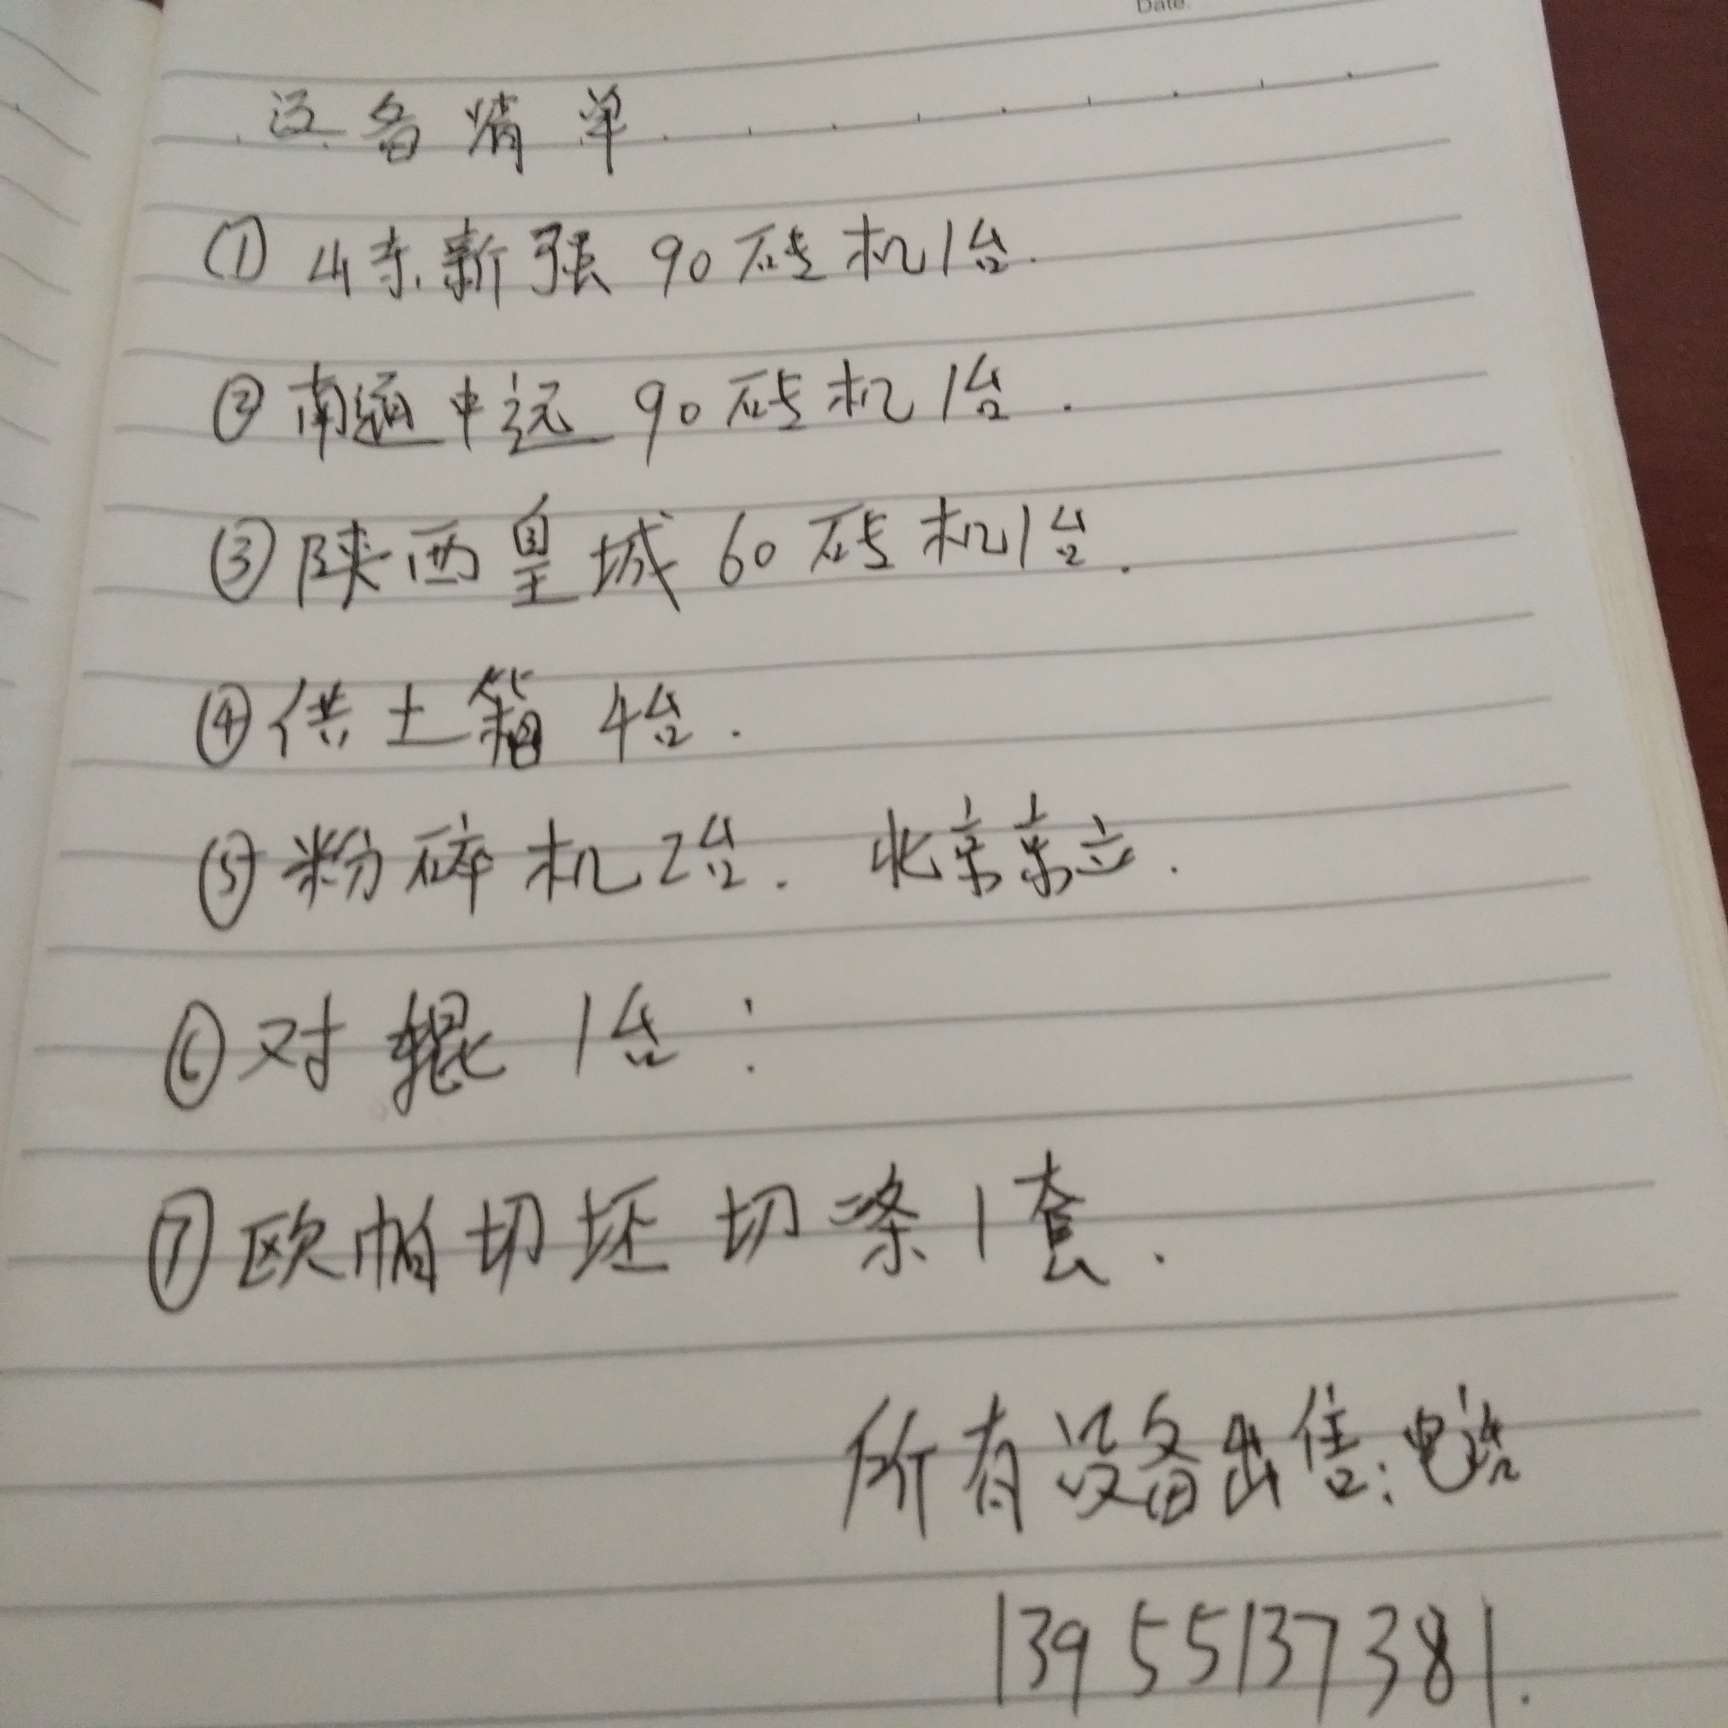 Date.
设备清单
① 山东新张90砖机1台.
② 南通中远90砖机1台.
③ 陕西皇城60砖机1台.
④ 供土箱4台.
⑤ 粉碎机2台. 北京京立.
⑥ 对辊1台:
⑦ 欧帕切坯切条1套.
所有设备出售:电话
13955137381.